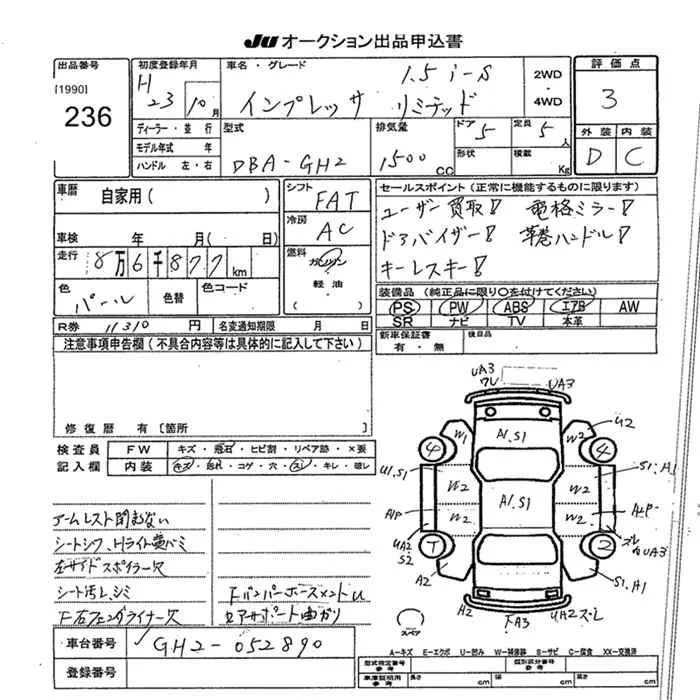 JU オークション出品申込書
出品番号
[1990]
236
初度登録年月
H
23 10月
車名・グレード
1.5 i-S
インプレッサ リミテッド
2WD
・
4WD
評価点
3
外装 内装
D C
ディーラー・並行
モデル年式 年
ハンドル 左・右
型式
DBA-GH2
排気量
1500 CC
ドア 5
定員 5人
形状
積載 Kg
車歴 自家用( )
シフト FAT
車検 年 月( 日)
冷房 AC
走行 8万6千877km
燃料 ガソリン
・
軽油
( )
色 パール
色替
色コード
セールスポイント(正常に機能するものに限ります)
ユーザー買取! 電格ミラー!
ドアバイザー! 革巻ハンドル!
キーレスキー!
装備品 (純正品に限り○を付けてください)
PS PW ABS エアB AW
SR ナビ TV 本革
R券 11310 円
名変通知期限 月 日
新車保証書
有・無
後日品
注意事項申告欄(不具合内容等は具体的に記入して下さい)
修復歴 有〔箇所 〕
検査員
記入欄
FW キズ・飛石・ヒビ割・リペア跡・×要
内装 キズ・汚れ・コゲ・穴・スレ・キレ・破レ
アームレスト閉まらない
シートシワ、Hライト黄バミ
左サイドスポイラー欠
シート汚レ、シミ
F右フェンダーライナー欠
FバンパーホースメントU
コアサポート曲ガリ
UA3
ワレ
UA3
U2
W1
A1.S1
W2
4
4
U1.S1
S1.A1
W2
W2
A1.S1
A1P
W2
W2
A2P
UA2
S2
T
2
スレ
UA3
A2
S1.A1
A2
FA3
UA2 スレ
スペア
A-キズ E-エクボ U-凹み W-補修跡 S-サビ C-腐食 XX-交換済
車台番号 GH2-052890
登録番号
型式指定番号
参考
類別区分番号
参考
車庫証明用
参考
長さ cm
幅 cm
高さ cm